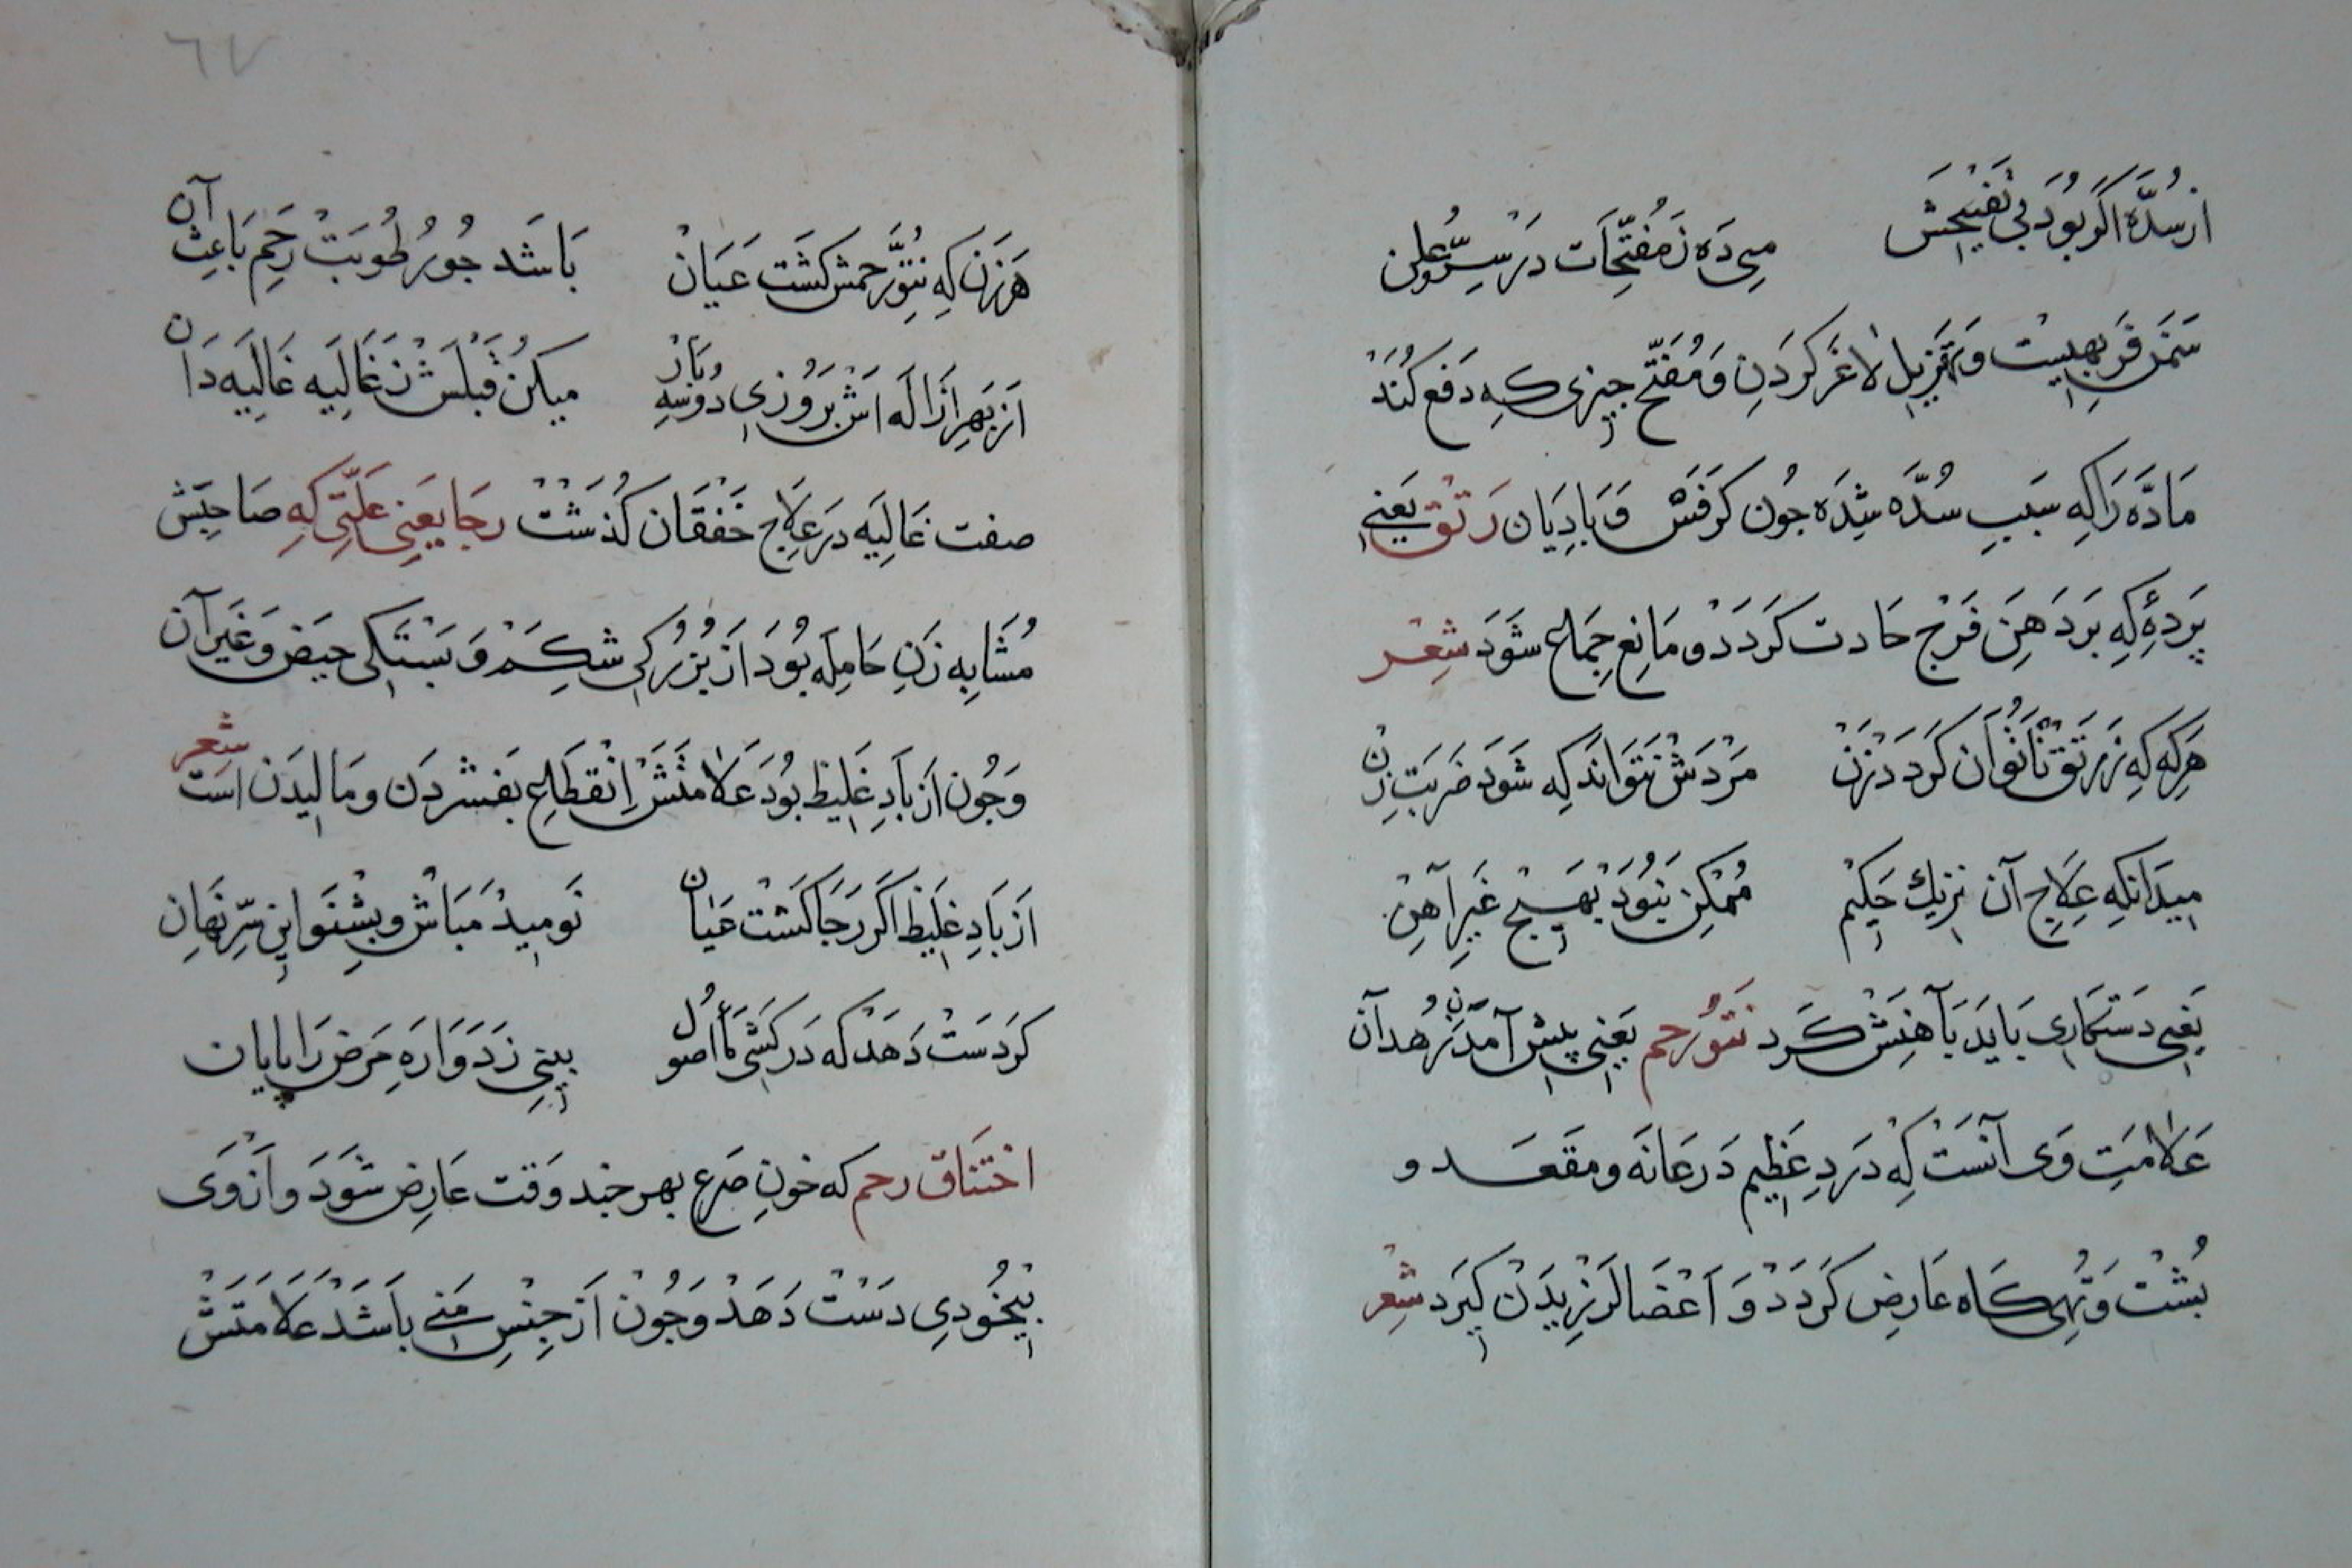 از سُدَّه اگر بُوَد بی تَفتیحَش میدَه زَ مُفَتِّحَات دَر سِرّ و عَلَن
سَمَن فَربهیست وَ تَهزیل لاغَر کردَن وَ مُفَتِّح چیزی که دَفع کُنَد
مَادَّه رَا که سَبَبِ سُدَّه شِدَه جُون کرَفس وَ بَادِیَان رَتْق یَعنی
پَردَهٔ که بَر دَهَن فَرْج حَادث کَردَد و مَانِع جِمَاع شَوَد شِعر
هَر که که زَ رَتَق نَاتُوَان کَردَد زَن مَرْدَش نَتَوَانَد که شَوَد ضَربَت زن
میدَانکه عِلَاجِ آن نزیك حَکیم مُمْکِن نَبُوَد بَهیچ غَیر آهَن
یَعنی دَستکَاری بَایَد بَآهنَش کَرد نُتُوِّ رحم یَعنی پیش آمَدَن زُهدَان
عَلامَتِ وَی آنَست که دَردِ عَظیم دَر عَانَه و مقعَد و
پُشْت وَ تُهی کَاه عَارِض کَردَد وَ اَعْضَا لَرزیدَن کیرَد شِعْر
هَر زَن که نُتُوِّ رحمش کشت عَیَانْ بَاشَد جُو رُطُوبَتْ رَحِم بَاعِثِ آن
اَز بَهرِ اِزَالَه اَش بَرُوزی دُو سِه بَار میکن قُبُلَش زَ غَالیه غَالیه دَان
صفت غَالیَه دَر عِلَاج خَفَقَان کُذَشْت رجَا یعَنِی عَلَّتی که صَاحبَش
مُشَابِه زَنِ حَامِلَه بُوَد اَز بُزُرُکی شکَم وَ بَسْتَکی حیَض وَ غَیر آن
وَ جُون اَز بَادِ غَلیظ بُوَد عَلامَتَش اِنْقطَاعِ بَفشردَن و مَالیدَن است شِعر
اَز بَادِ غَلیظ اکَر رَجَا کَشْت عَیَان نَومید مَبَاش و بِشنَو این سِرّ نَهَان
کَر دَست دَهَد که دَر کَشی مَأ اصُول بینی زَ دَوَا رَهِ مَرَض رَا پایان
اختنَاق رحم که خونِ صَرع بهر جند وَقت عَارِض شَوَد و اَز وَی
بیخُودی دَسْت دَهَد وَ جُون اَز جِنْسِ مَنی بَاشَد عَلامَتَش